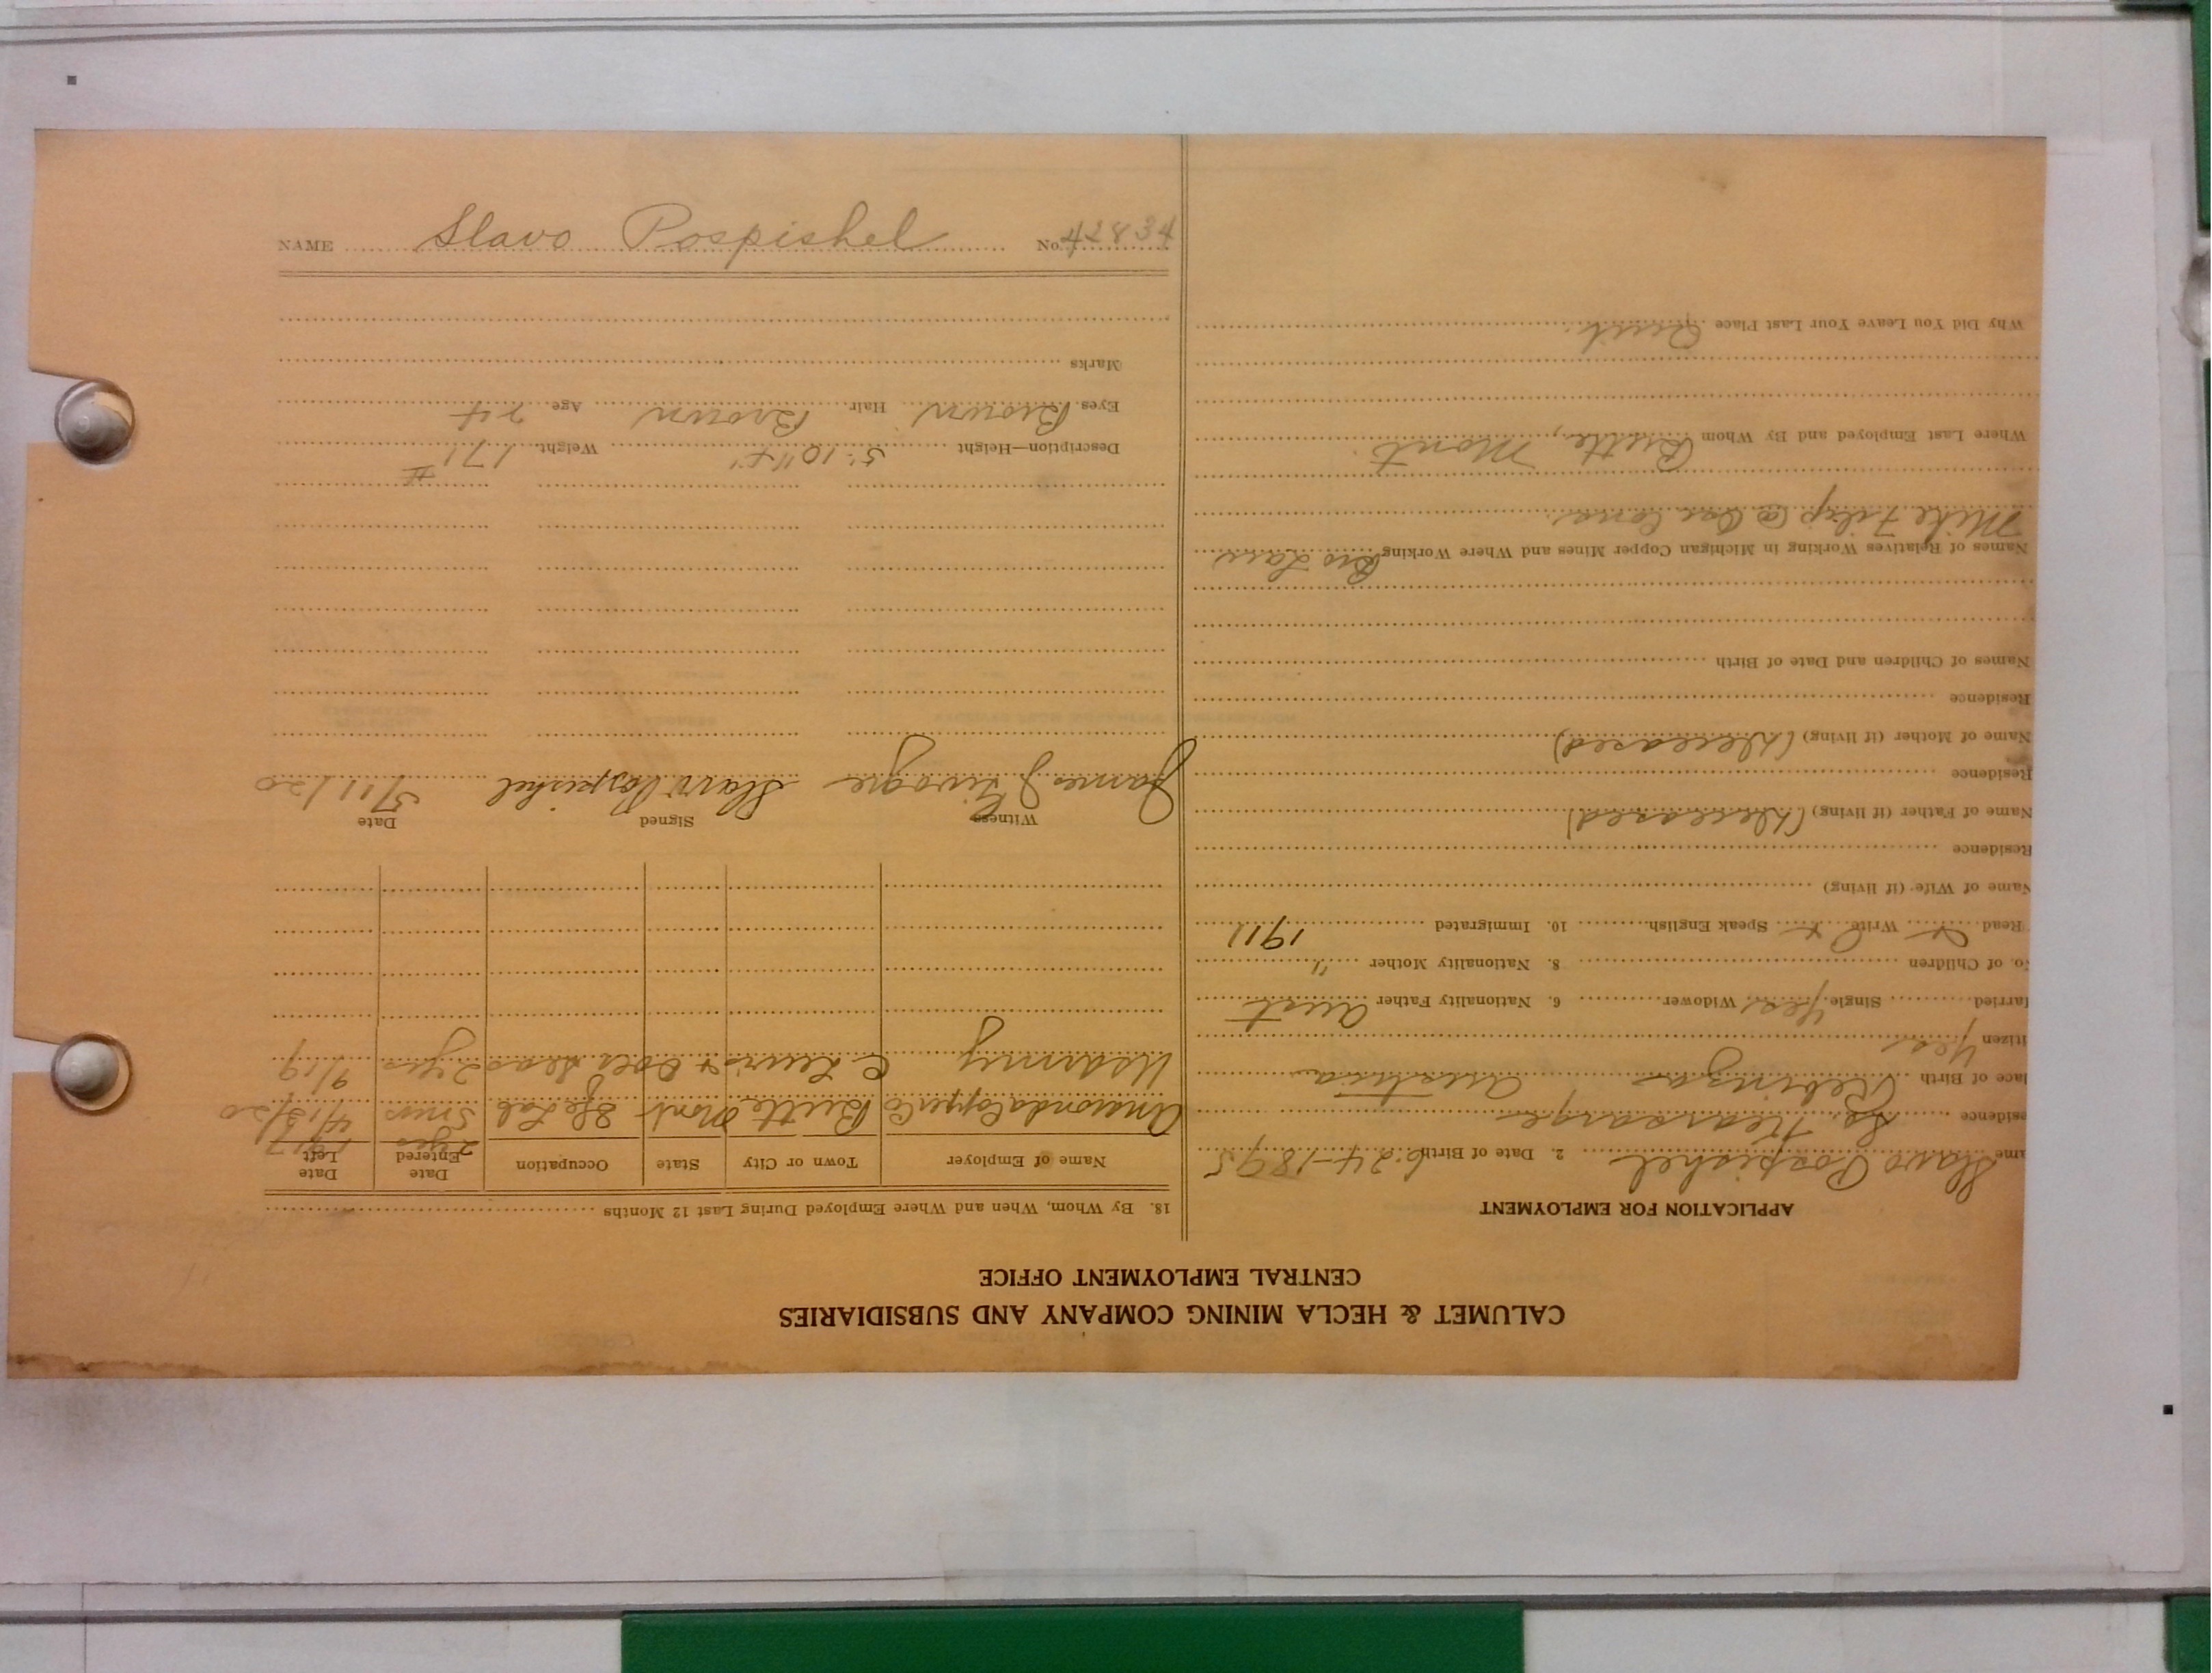 NAME Slavo Pospishel No. 42834
CALUMET & HECLA MINING COMPANY AND SUBSIDIARIES
CENTRAL EMPLOYMENT OFFICE
APPLICATION FOR EMPLOYMENT
ame Slavo Pospishel 2. Date of Birth 6-24-1895
esidence So. Kearsarge
lace of Birth Austria
itizen Yes
larried Single Yes Widower 6. Nationality Father Aust
o. of Children 8. Nationality Mother "
Read x Write x Speak English 10. Immigrated 1911
Name of Wife (if living)
Residence
Name of Father (if living) (Deceased)
Residence
Name of Mother (if living) (Deceased)
Residence
Names of Children and Date of Birth
Names of Relatives Working in Michigan Copper Mines and Where Working Bro Law
Mike Filip @
Where Last Employed and By Whom Butte, Mont
Why Did You Leave Your Last Place Quit.
18. By Whom, When and Where Employed During Last 12 Months
Name of Employer Town or City State Occupation Date Entered Date Left
2 yrs 1917
Anaconda Copper Co Butte Mont Sfe Lab 5 mos 4/15/20
US Army C. Lewis + Seas 2 yrs 9/19
Witness Signed Date
James J Slavo Pospishel 5/11/20
Description—Height 5'-10" Weight 171 #
Eyes Brown Hair Brown Age 24
Marks